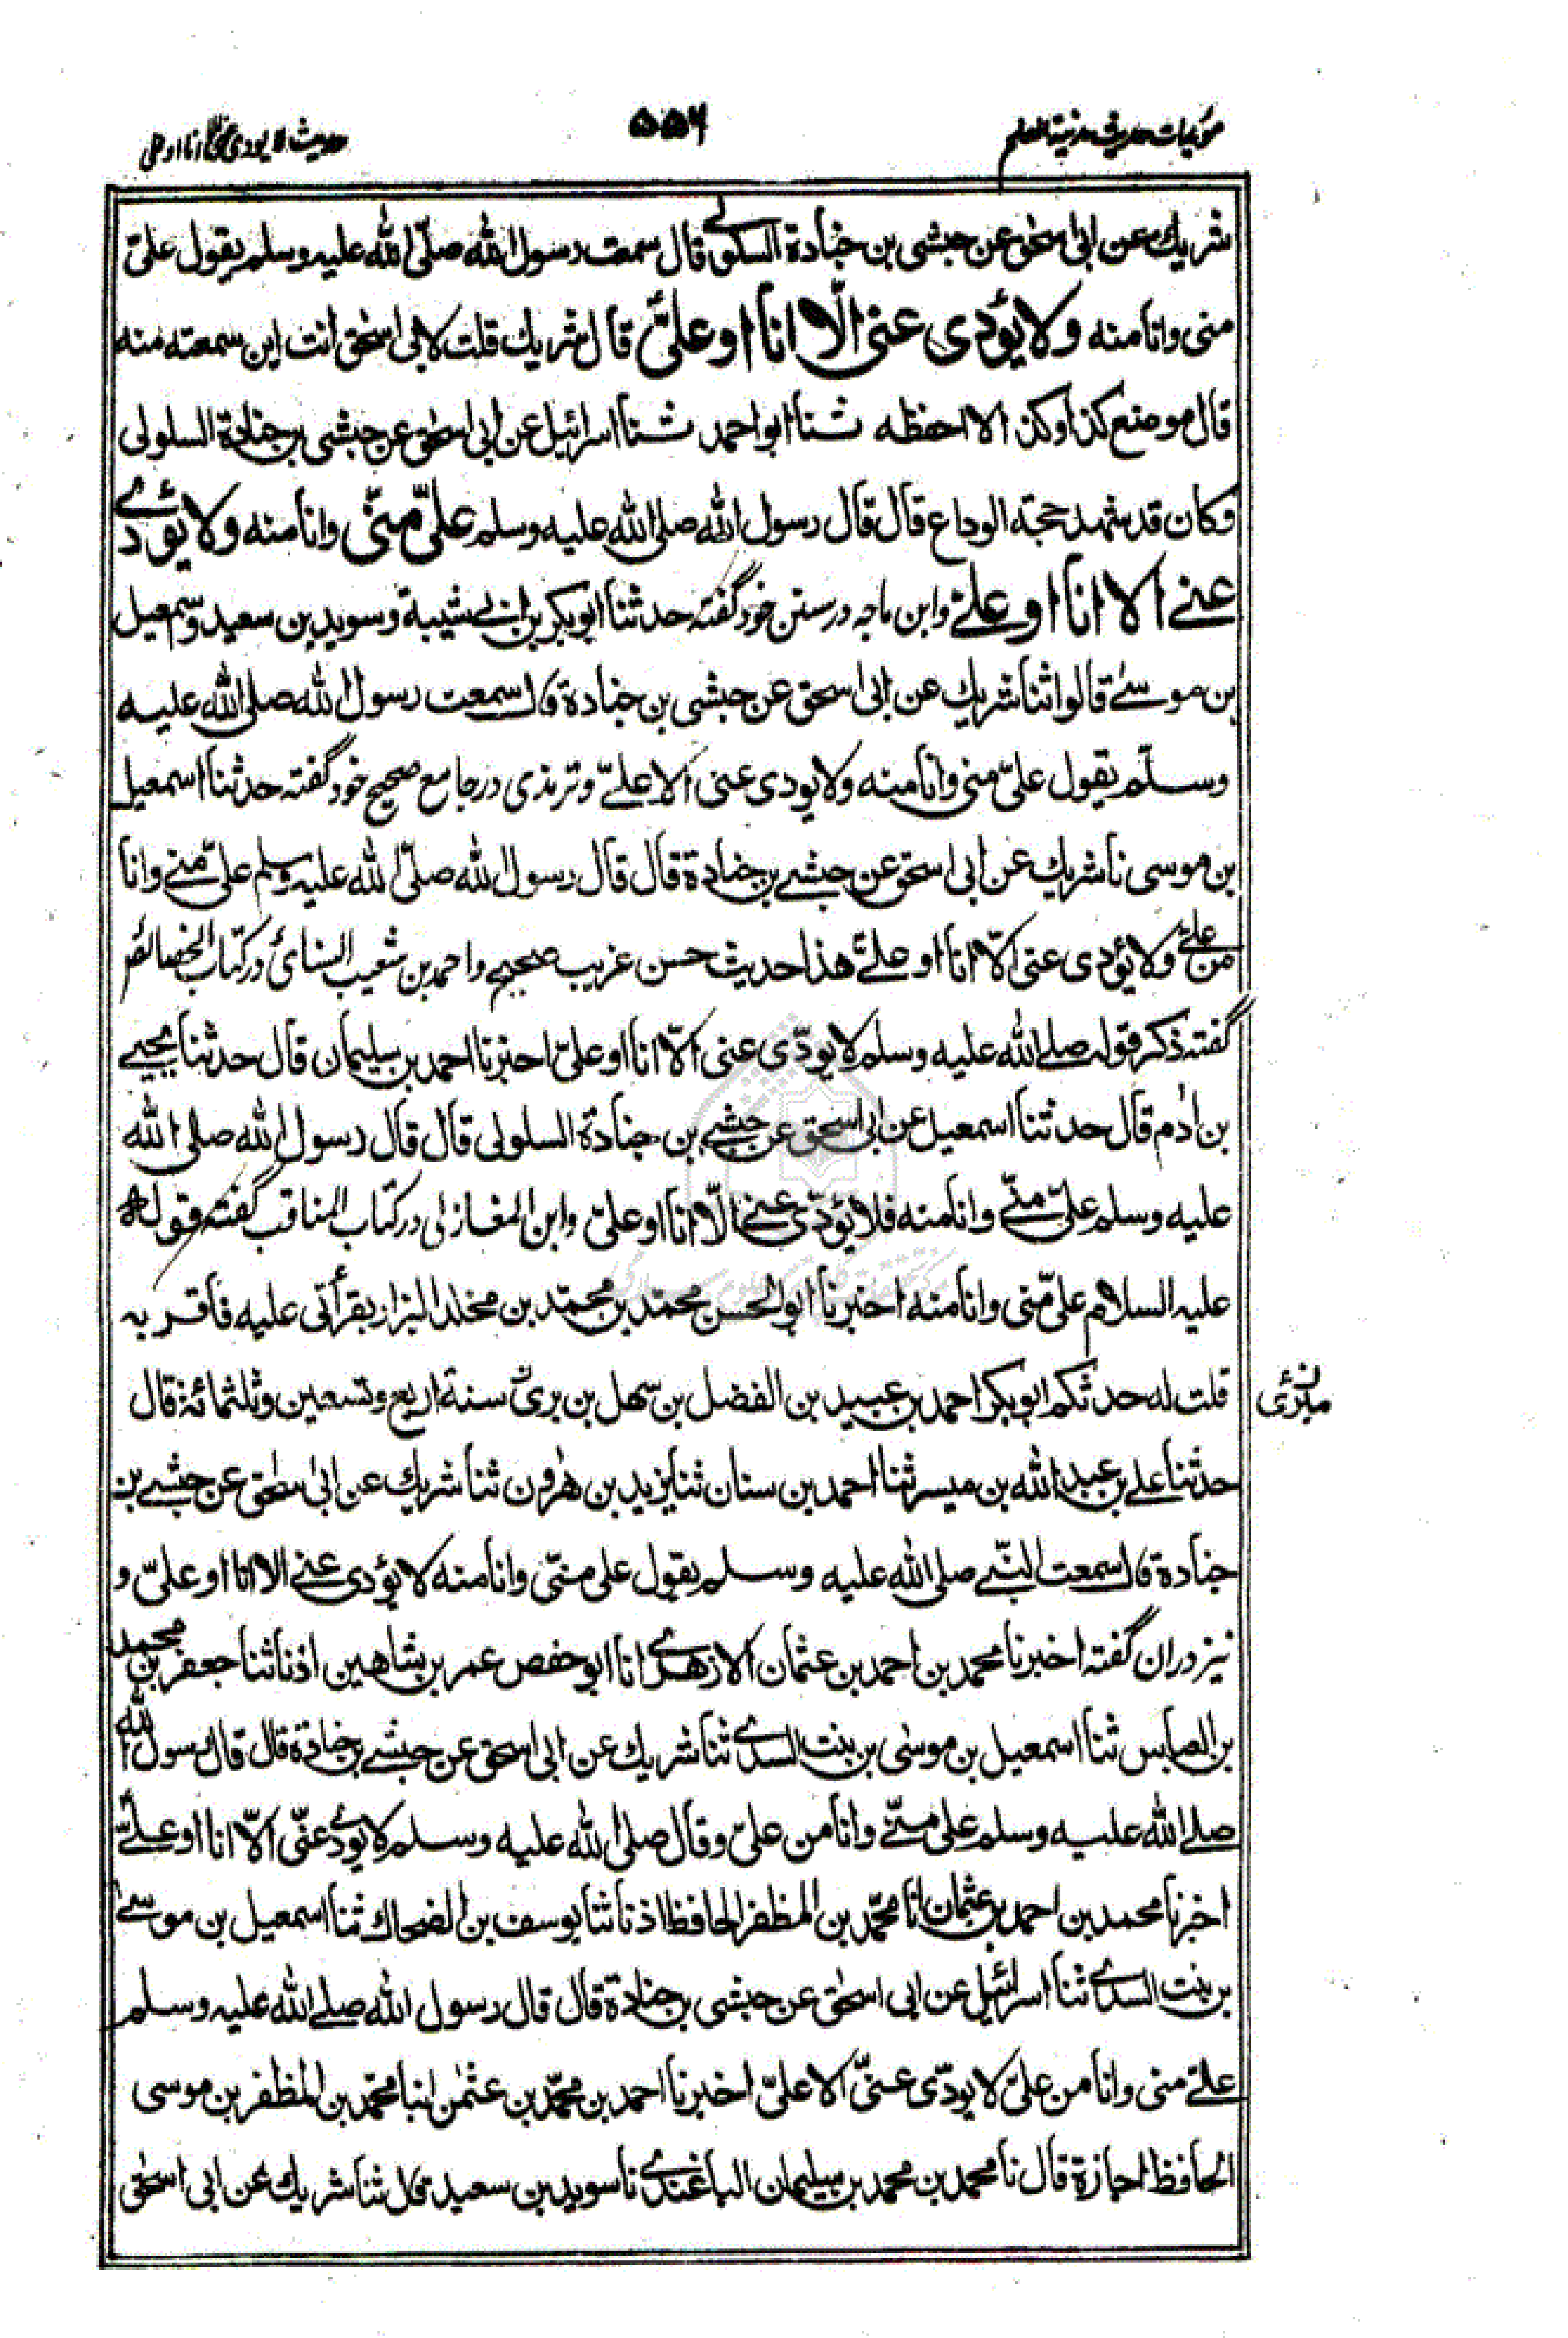 مؤيدات حديث مدينة العلم
۵۵۶
حديث لا يودى عنى الا انا او على
شريك عن ابى اسحٰق عن حبشى بن جنادة السكونى قال سمعت رسول الله صلّى الله عليه وسلم يقول علىّ
منى وانا منه ولا يؤدى عنى الّا انا او علىّ قال شريك قلت لابى اسحٰق انت اين سمعته منه
قال موضع كذا وكذا لا احفظه ثنا ابو احمد ثنا اسرائيل عن ابى اسحٰق عن حبشى بن جنادة السلولى
وكان قد شهد حجة الوداع قال قال رسول الله صلى الله عليه وسلم علىّ منّى وانا منه ولا يؤدى
عنى الا انا او علىّ وابن ماجه در سنن خود گفته حدثنا ابو بكر بن ابى شيبة وسويد بن سعيد واسمعيل
بن موسىٰ قالوا ثنا شريك عن ابى اسحق عن حبشى بن جنادة قال سمعت رسول الله صلى الله عليه
وسلّم يقول علىّ منى وانا منه ولا يودى عنى الا علىّ وترمذى در جامع صحيح خود گفته حدثنا اسمعيل
بن موسى نا شريك عن ابى اسحق عن حبشى بن جنادة قال قال رسول الله صلّى الله عليه وسلم علىّ منى وانا
من علىّ ولا يؤدى عنى الّا انا او علىّ هذا حديث حسن غريب صحيح واحمد بن شعيب النسائى در كتاب الخصائص
گفته ذكر قوله صلى الله عليه وسلم لا يودّى عنى الّا انا او علىّ اخبرنا احمد بن سليمان قال حدثنا يحيى
بن اٰدم قال حدثنا اسمعيل عن ابى اسحق عن حبشى بن جنادة السلولى قال قال رسول الله صلى الله
عليه وسلم علىّ منّى وانا منه فلا يؤدّى عنى الّا انا او علىّ وابن المغازلى در كتاب المناقب گفته قوله
عليه السلام علىّ منّى وانا منه اخبرنا ابو الحسن محمد بن محمد بن مخلد البزار بقرأتى عليه فاقر به
قلت له حدثكم ابو بكر احمد بن عبيد بن الفضل بن سهل بن برىٰ سنة اربع وتسعين وثلثمائة قال
حدثنا على بن عبد الله بن ميسر ثنا احمد بن سنان ثنا يزيد بن هٰرون ثنا شريك عن ابى اسحٰق عن حبشى بن
جنادة قال سمعت النّبى صلى الله عليه وسلم يقول على منّى وانا منه لا يؤدى عنى الا انا او علىّ و
نيز دران گفته اخبرنا محمد بن احمد بن عثمان الازهرى انا ابو حفص عمر بن شاهين اذنا ثنا جعفر بن محمد
بن العباس ثنا اسمعيل بن موسٰى بن بنت السدى ثنا شريك عن ابى اسحق عن حبشى بن جنادة قال قال رسول الله
صلى الله عليه وسلم على منّى وانا من علىّ وقال صلى الله عليه وسلم لا يؤدى عنّى الّا انا او علىّ
اخبرنا محمد بن احمد بن عثمان انا محمّد بن المظفر الحافظ اذنا ثنا يوسف بن الضحاك ثنا اسمعيل بن موسىٰ
بن بنت السدى ثنا اسرائيل عن ابى اسحٰق عن حبشى بن جنادة قال قال رسول الله صلى الله عليه وسلم
علىّ منى وانا من علىّ لا يودّى عنّى الا علىّ اخبرنا احمد بن محمّد بن عثمٰن انبا محمّد بن المظفر بن موسى
الحافظ اجازة قال نا محمد بن محمد بن سليمان الباغندى نا سويد بن سعيد قال ثنا شريك عن ابى اسحٰق